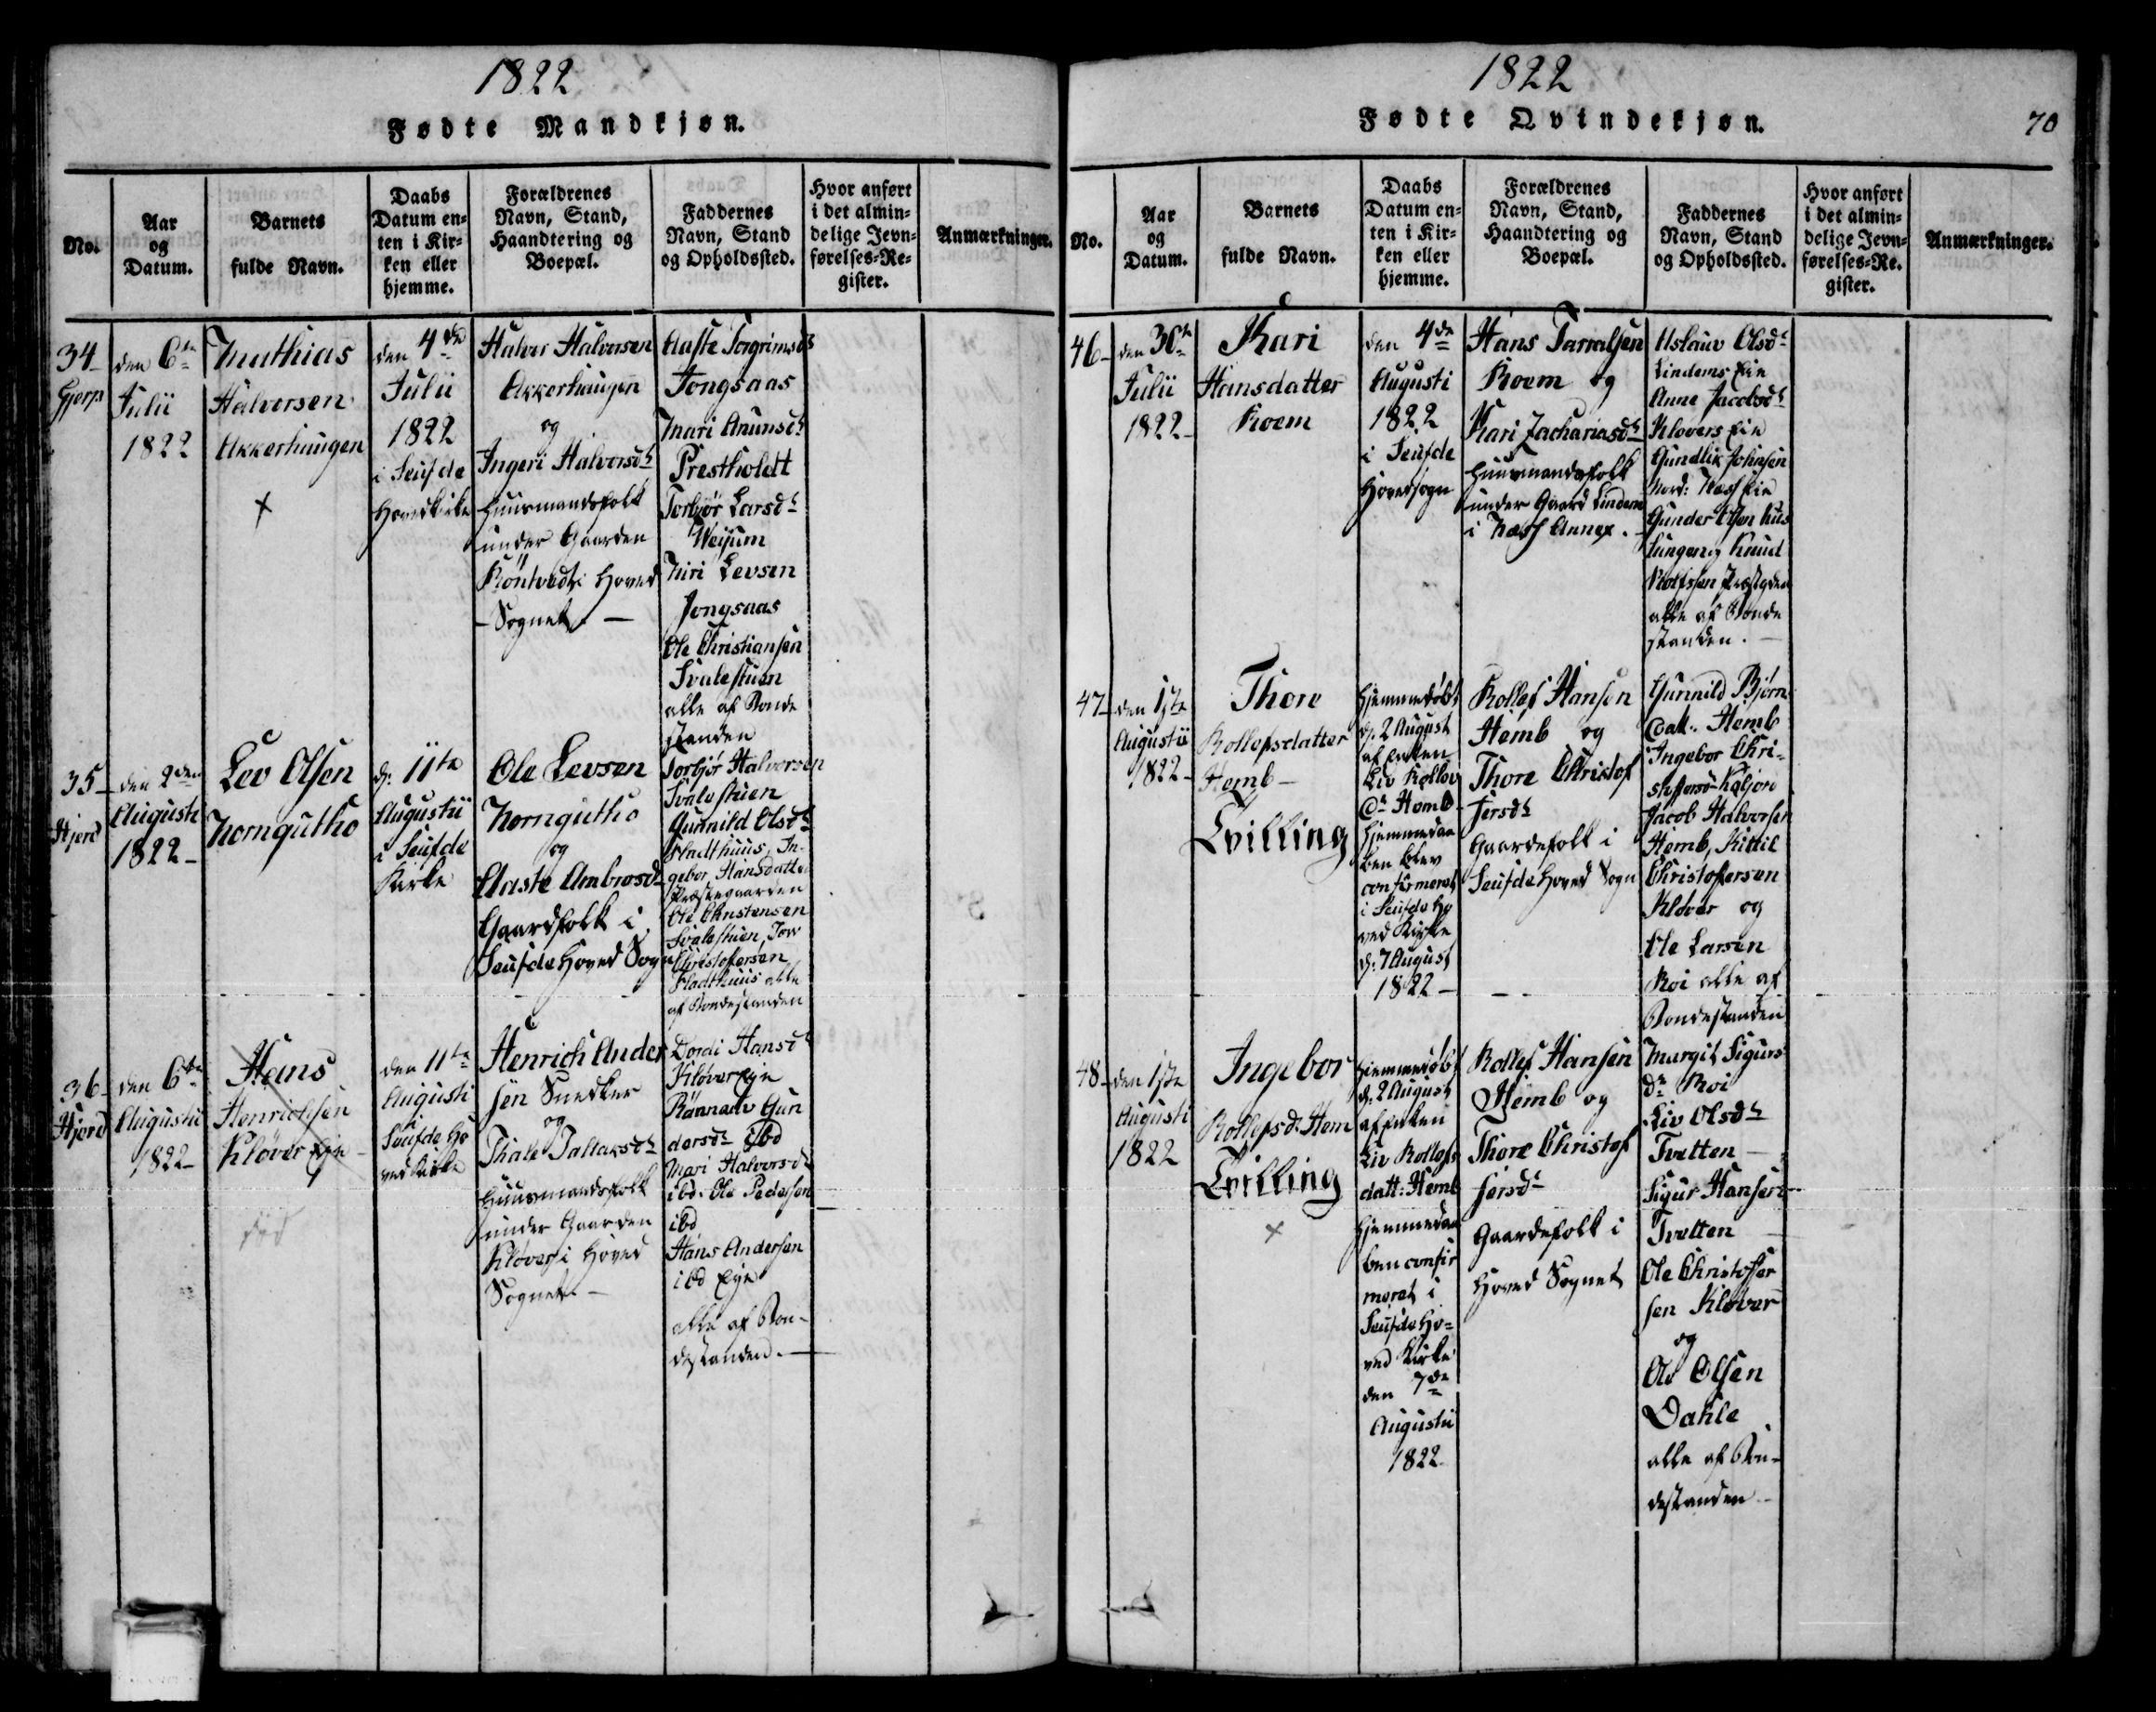 1822
Fødte Mandkjøn.
No.
Aar
og
Datum.
Barnets
fulde Navn.
Daabs
Datum en-
ten i Kir-
ken eller
hjemme.
Forældrenes
Navn, Stand,
Haandtering og
Boepæl.
Faddernes
Navn, Stand
og Opholdssted.
Hvor anført
i det almin-
delige Jevn-
førelses-Re-
gister.
Anmærkninger.
34
den 6te
Julii
1822
Mathias
Halversen
Akkerhaugen
den 4de
Julii
1822
i Seufde
Hovedkirke
Halver Halversen
Akkerhaugen
og
Ingeri Halversd
Huusmandsfolk
under Gaarden
i Hoved
Sognet. —
Aaste Torgrimsd
Jongsaas
Mari Anunsd
Prestholdt
Torbjør Larsd
Levsen
Jongsaas
Ole Christiansen
Svalestuen
alle af Bonde
standen
35
Hjerd
den 2den
Augusti
1822
Lev Olsen
Korngutho
d: 11te
Augustii
i Seufde
Kirke
Ole Levsen
Korngutho
og
Aaste Ambrosd
Gaardfolk i
Seufde Hoved Sogn
Torbjør Halversen
Svalestuen
Gunnild Olsd
Pladthuus, In-
gebor Hansdatter
Præstegaarden
Ole Christensen
Svalestuen, Tov
Christofersen
Pladthuus alle
af Bondestanden
36
Hjerd
den 6te
Augustii
1822
Hans
Henrichsen
Kløver Eje
død
den 11te
Augusti
i
Seufde Ho
ved Kirke
Henrich Ander
sen Snedker
og
Thale Jallaksd
Huusmandsfolk
under Gaarden
Kløver i Hoved
Sognet. —
Dordi Hansd
Kløver Eje
Rannau Gun
dersd ibd
Mari Halversd
ibd. Ole Pedersen
ibd
Hans Andersen
ibd Eje
alle af Bon-
destanden. —
1822
Fødte Qvindekjøn.
70
No.
Aar
og
Datum.
Barnets
fulde Navn.
Daabs
Datum en-
ten i Kir-
ken eller
hjemme.
Forældrenes
Navn, Stand,
Haandtering og
Boepæl.
Faddernes
Navn, Stand
og Opholdssted.
Hvor anført
i det almin-
delige Jevn-
førelses-Re-
gister.
Anmærkninger.
46
den 30te
Julii
1822
Kari
Hansdatter
Roem
den 4de
Augusti
1822
i Seufde
Hovedsogn
Hans Tarralsen
Roem og
Kari Zachariasd
Huusmandsfolk
under Gaard Lindem
i Næss Annex.
Aslaug Olsd
Lindems Eie
Anne Jacobsd
Klovers Eie
Gundlik Johnsen
Nord: Næss Eie
Gunder Olsen
og Knud
alle af Bonde
standen. —
47
den 1ste
Augustii
1822
Thore
Rollefsdatter
Hemb —
Tvilling
Hjemmedøbt
d: 2 August
af Enken
Liv Rollev
Dr Hemb
Hjemmedaa
ben blev
confirmeret
i Seufde Ho
ved Kirke
d: 7 August
1822 —
Rollef Hansen
Hemb og
Thore Christof
fersd
Gaardefolk i
Seufde Hoved Sogn
Gunnild Bjørn
Datt. Hemb
Ingebor Chri-
Jacob Halversen
Hemb, Kittil
Christofersen
Kløver og
Ole Larsen
Roi alle af
Bondestanden
48
den 1ste
Augusti
1822
Ingebor
Rollefsd: Hem
Tvilling
Hjemmedøbt
d: 2 August
af Enken
Liv Rollefs
datt: Hemb
Hjemmedaa
ben confir
meret i
Seufde Ho-
ved Kirke
den 7de
Augustii
1822
Rollef Hansen
Hemb og
Thore Christof
fersd
Gaardefolk i
Hoved Sognet
Margit Sigurs
dr Roi
Liv Olsd
Tvetten —
Sigur Hansen
Tvetten —
Ole Christoffer
sen Kløver
og
Ole Olsen
Dahle
alle af Bon-
destanden —